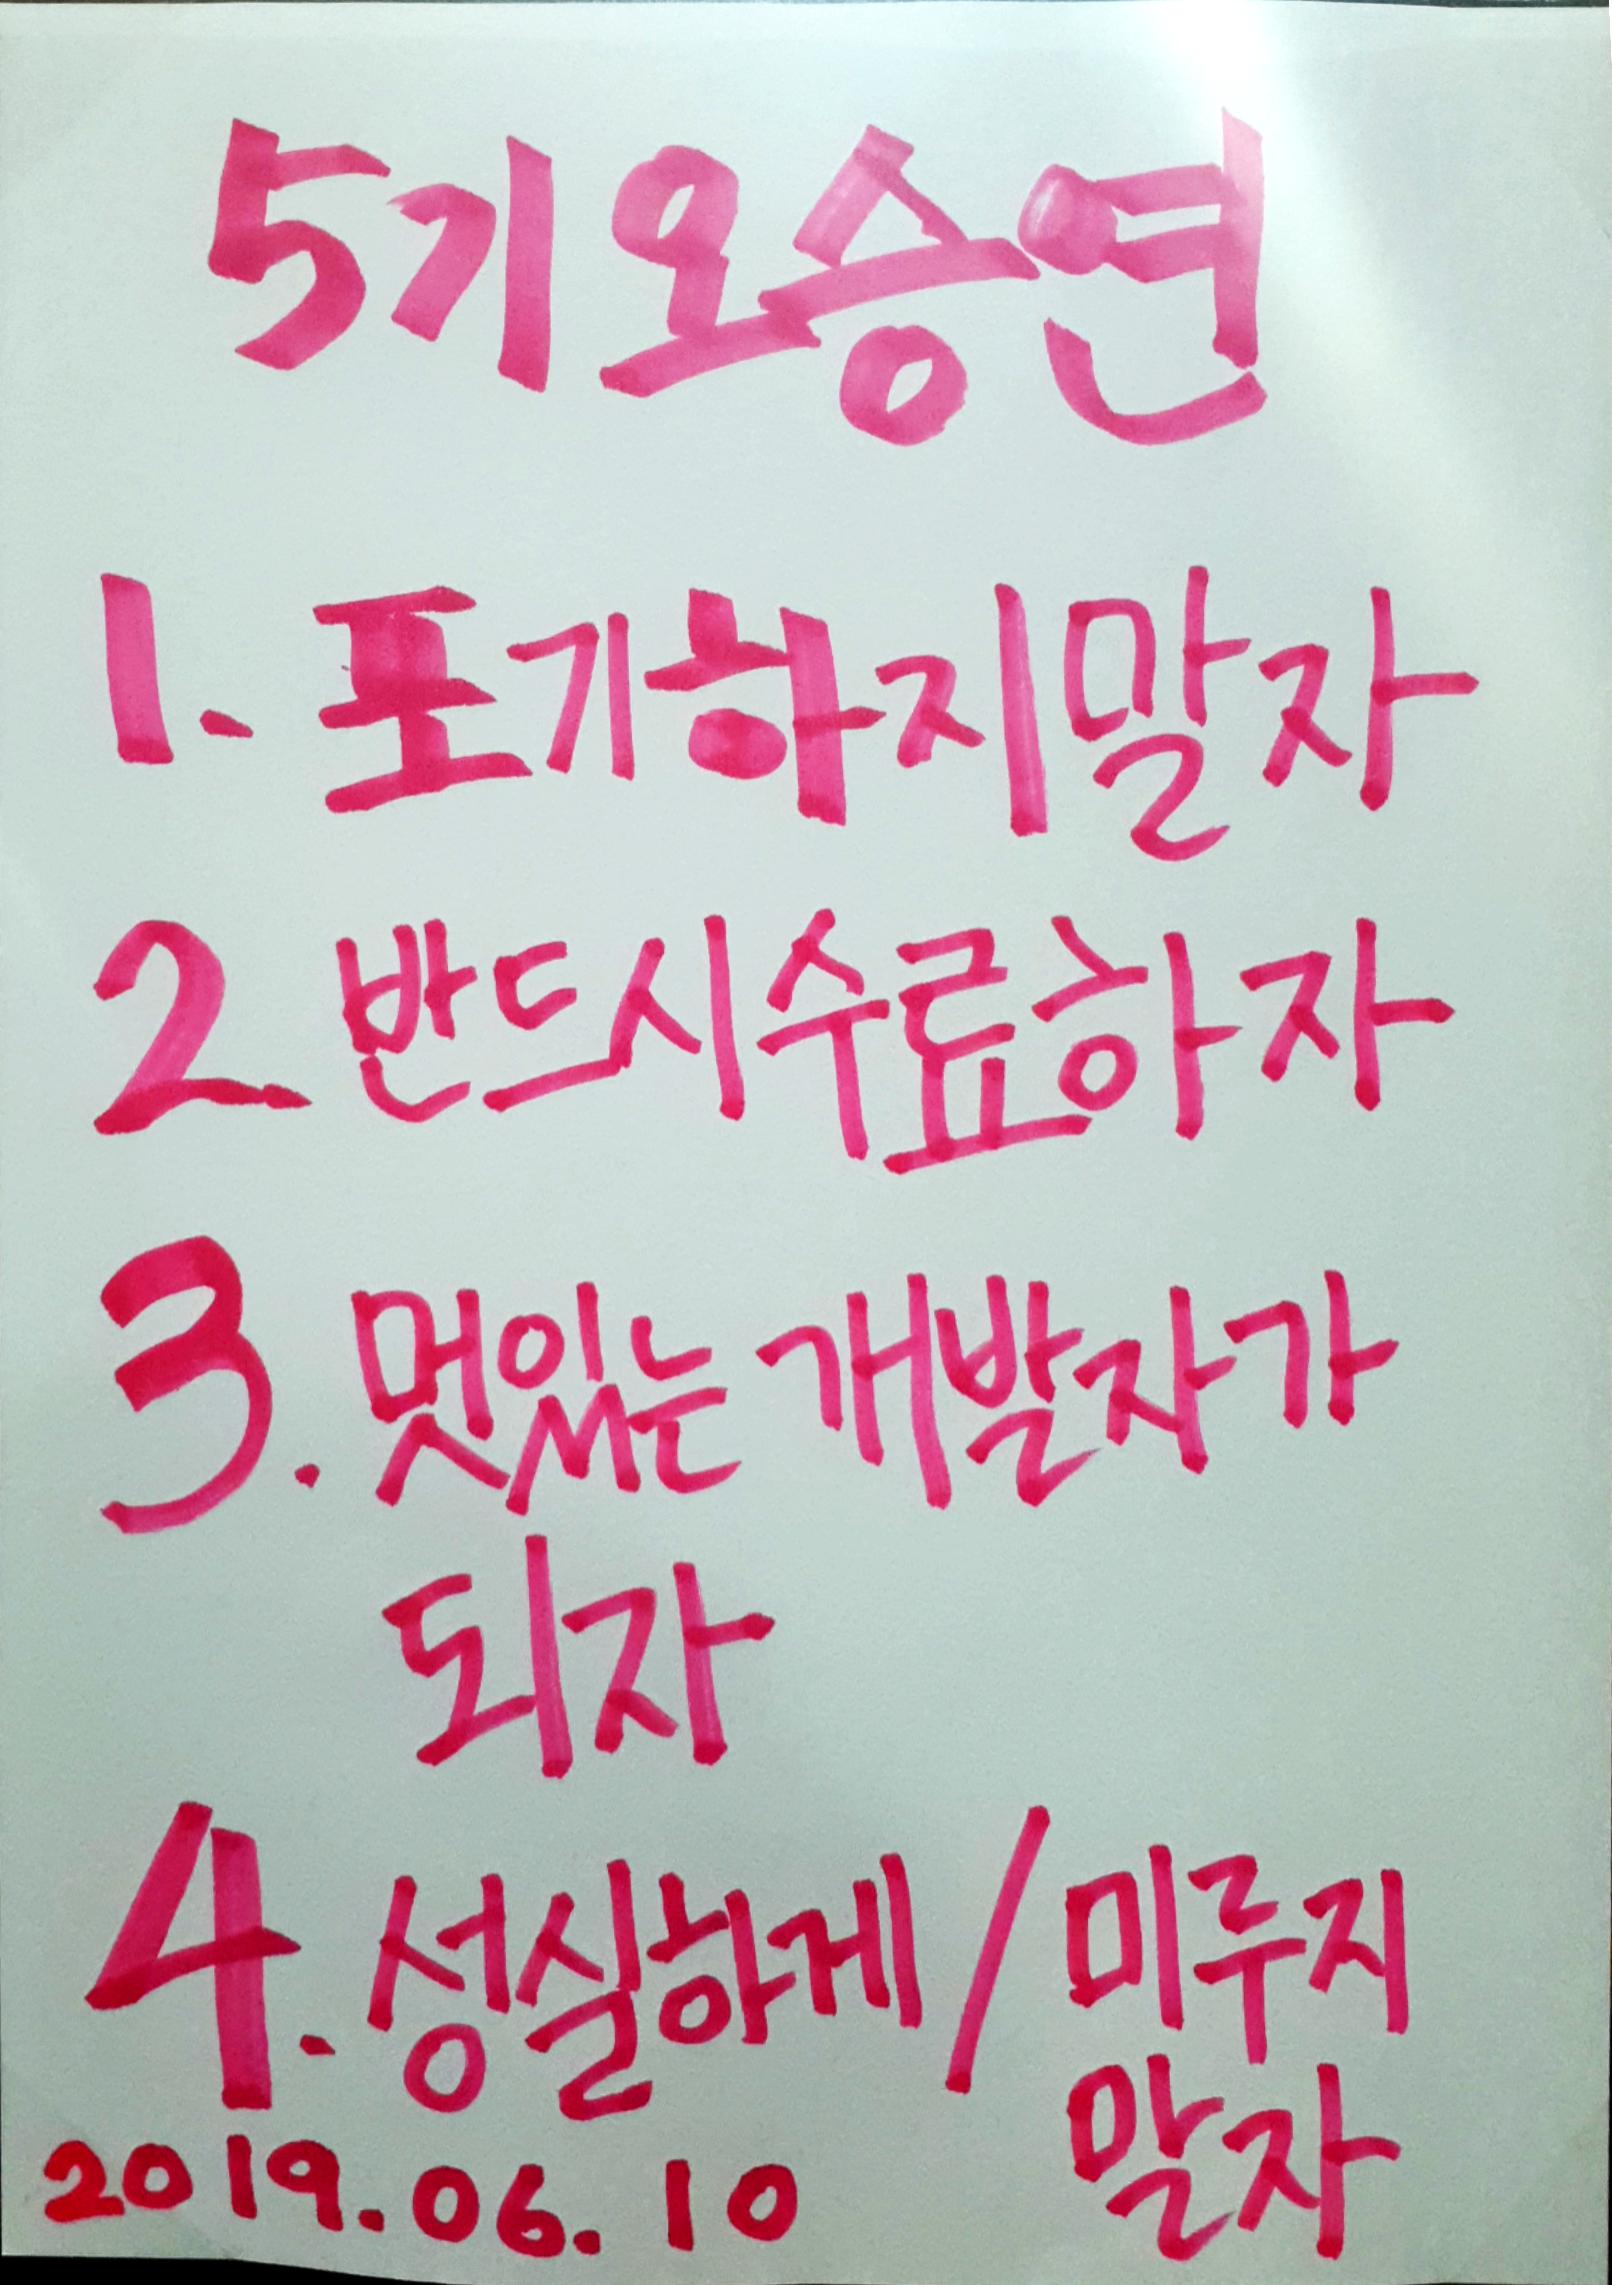 5기 오승연
1. 포기하지말자
2. 반드시수료하자
3. 멋있는 개발자가
되자
4. 성실하게 / 미루지
말자
2019.06.10